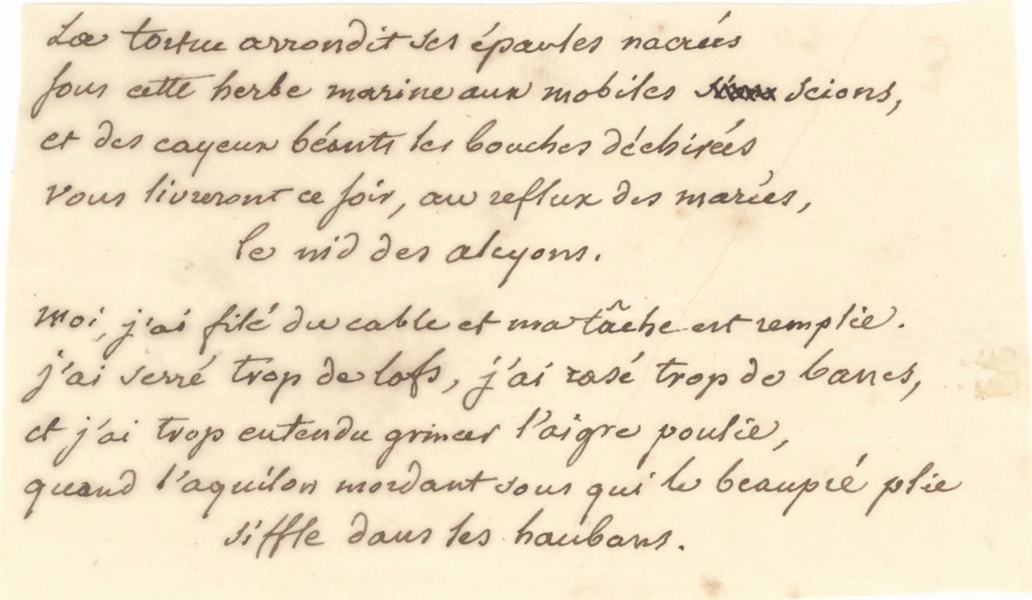 La tortue arrondit ses épaules nacrées
sous cette herbe marine aux mobiles scions,
et des cayeux béants les bouches déchirées
vous livreront ce soir, au reflux des marées,
le nid des alcyons.
moi, j'ai filé du cable et ma tâche est remplie.
j'ai serré trop de lofs, j'ai rasé trop de bancs,
et j'ai trop entendu grincer l'aigre poulie,
quand l'aquilon mordant sous qui le beaupré plie
siffle dans les haubans.